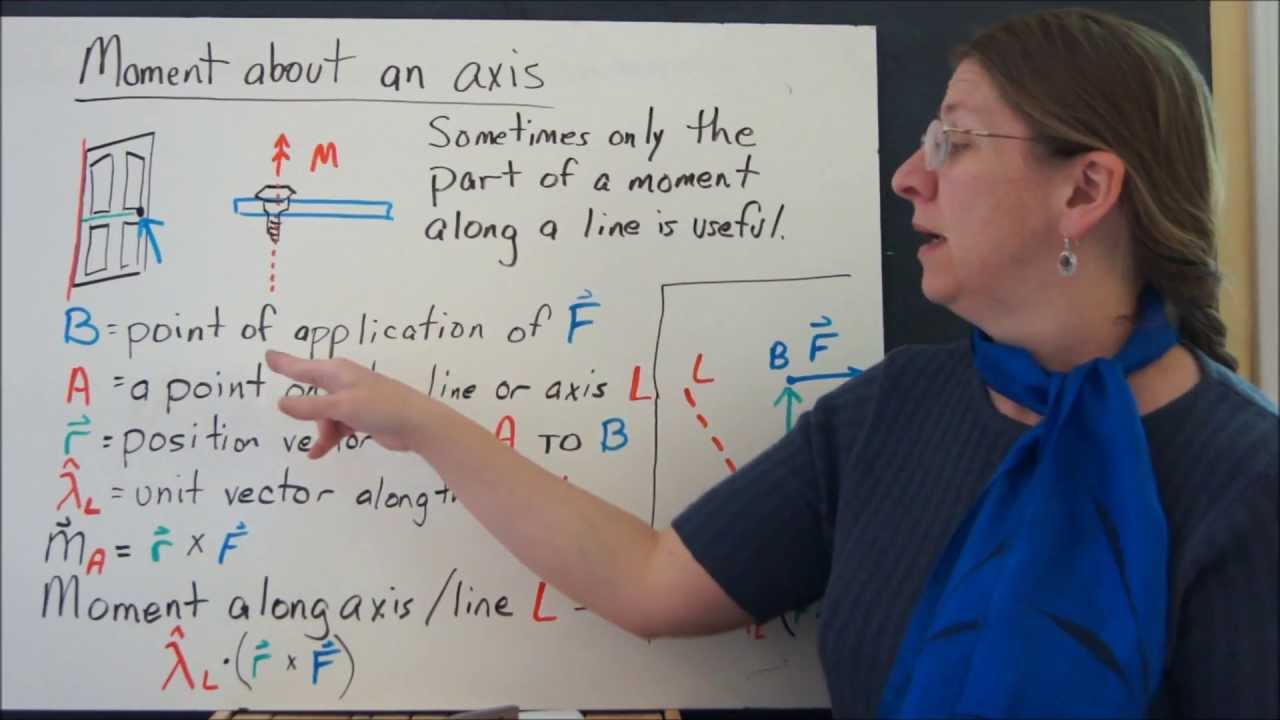 Moment about an axis
M
Sometimes only the
part of a moment
along a line is useful.
B = point of application of F⃗
A = a point on line or axis L
r⃗ = position vector A TO B
λ̂_L = unit vector along
m⃗_A = r⃗ × F⃗
Moment along axis/line L =
λ̂_L · (r⃗ × F⃗)
L
B F⃗